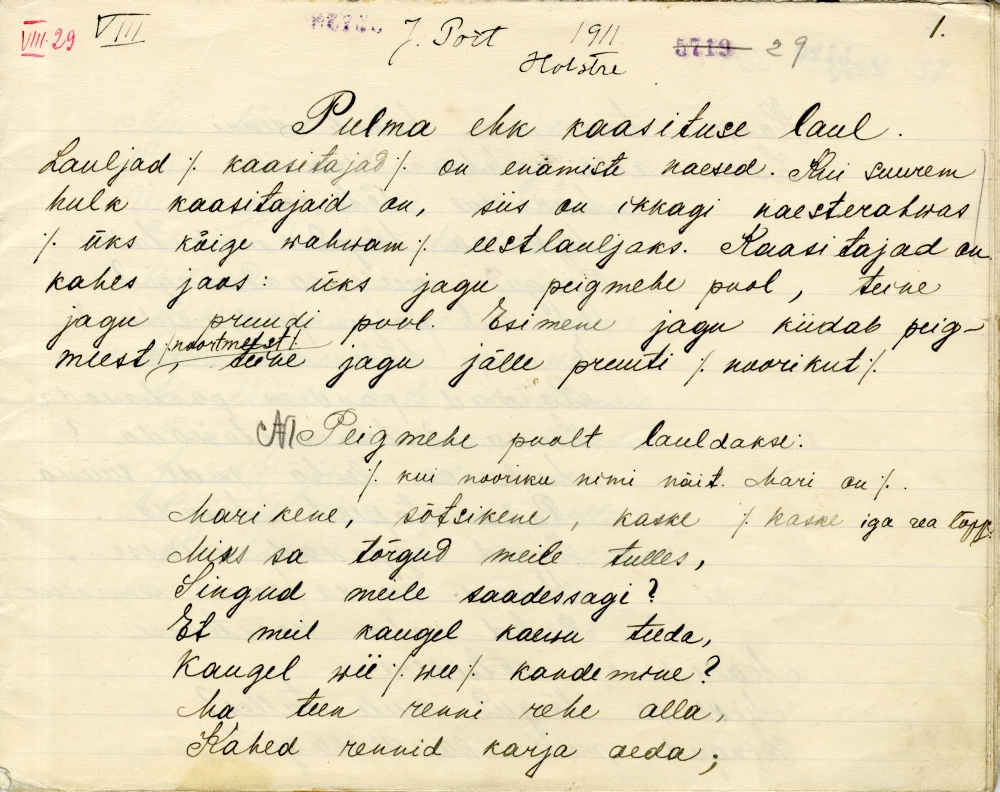 VIII.29 VIII J. Port 1911 5719 29 1.
Holstre
Pulma ehk kaasituse laul.
Lauljad /. kaasitajad /. on enamiste naesed. Kui suurem
hulk kaasitajaid on, siis on ikkagi naesterahwas
/. üks kõige wahwam /. eestlauljaks. Kaasitajad on
kahes jaos: üks jagu peigmehe pool, teine
jagu pruudi pool. Esimene jagu kiidab peig-
meest /. noortmeest /., teine jagu jälle pruuti /. noorikut /.
Peigmehe poolt lauldakse:
/. kui nooriku nimi näit. Mari on /.
Marikene, sõtsikene, kaske /. kaske iga rea
Miks sa tõrgud meile tulles,
Singud meile saadessagi?
Et meil kaugel kaewu teeda,
Kaugel wii /. wee /. kandemine?
Ma teen renni rehe alla,
Kahed rennid karja aeda;